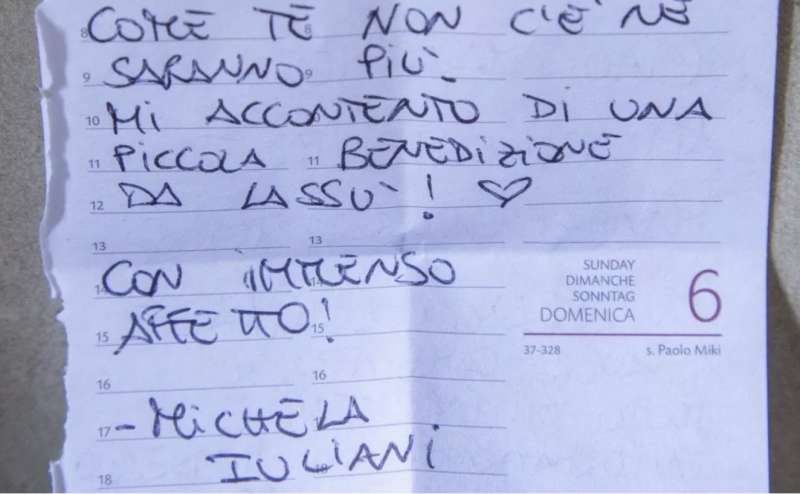 8 8
COME TE NON C'È NE
9 SARANNO 9 PIÙ
10 MI ACCONTENTO DI UNA
11 PICCOLA 11 BENEDIZIONE
12 DA LASSÙ! ♡
13 13
CON IMMENSO
15 AFFETTO! 15
16 16
17 - MICHELA
IULIANI
18
SUNDAY
DIMANCHE
SONNTAG
DOMENICA
6
37-328 s. Paolo Miki